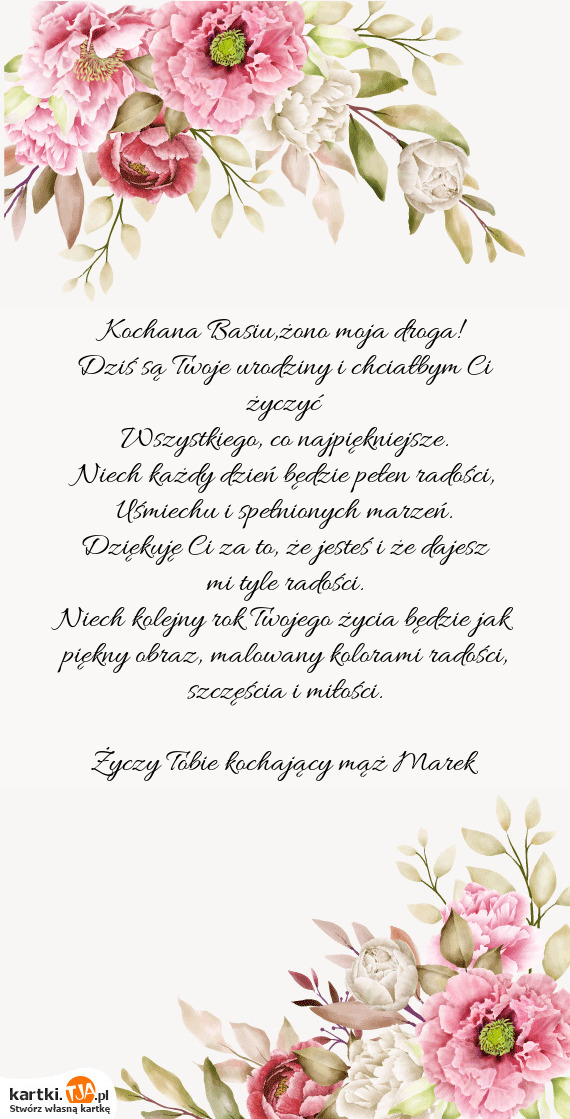 Kochana Basiu,żono moja droga!
Dziś są Twoje urodziny i chciałbym Ci
życzyć
Wszystkiego, co najpiękniejsze.
Niech każdy dzień będzie pełen radości,
Uśmiechu i spełnionych marzeń.
Dziękuję Ci za to, że jesteś i że dajesz
mi tyle radości.
Niech kolejny rok Twojego życia będzie jak
piękny obraz, malowany kolorami radości,
szczęścia i miłości.
Życzy Tobie kochający mąż Marek
kartki.TJA.pl
Stwórz własną kartkę